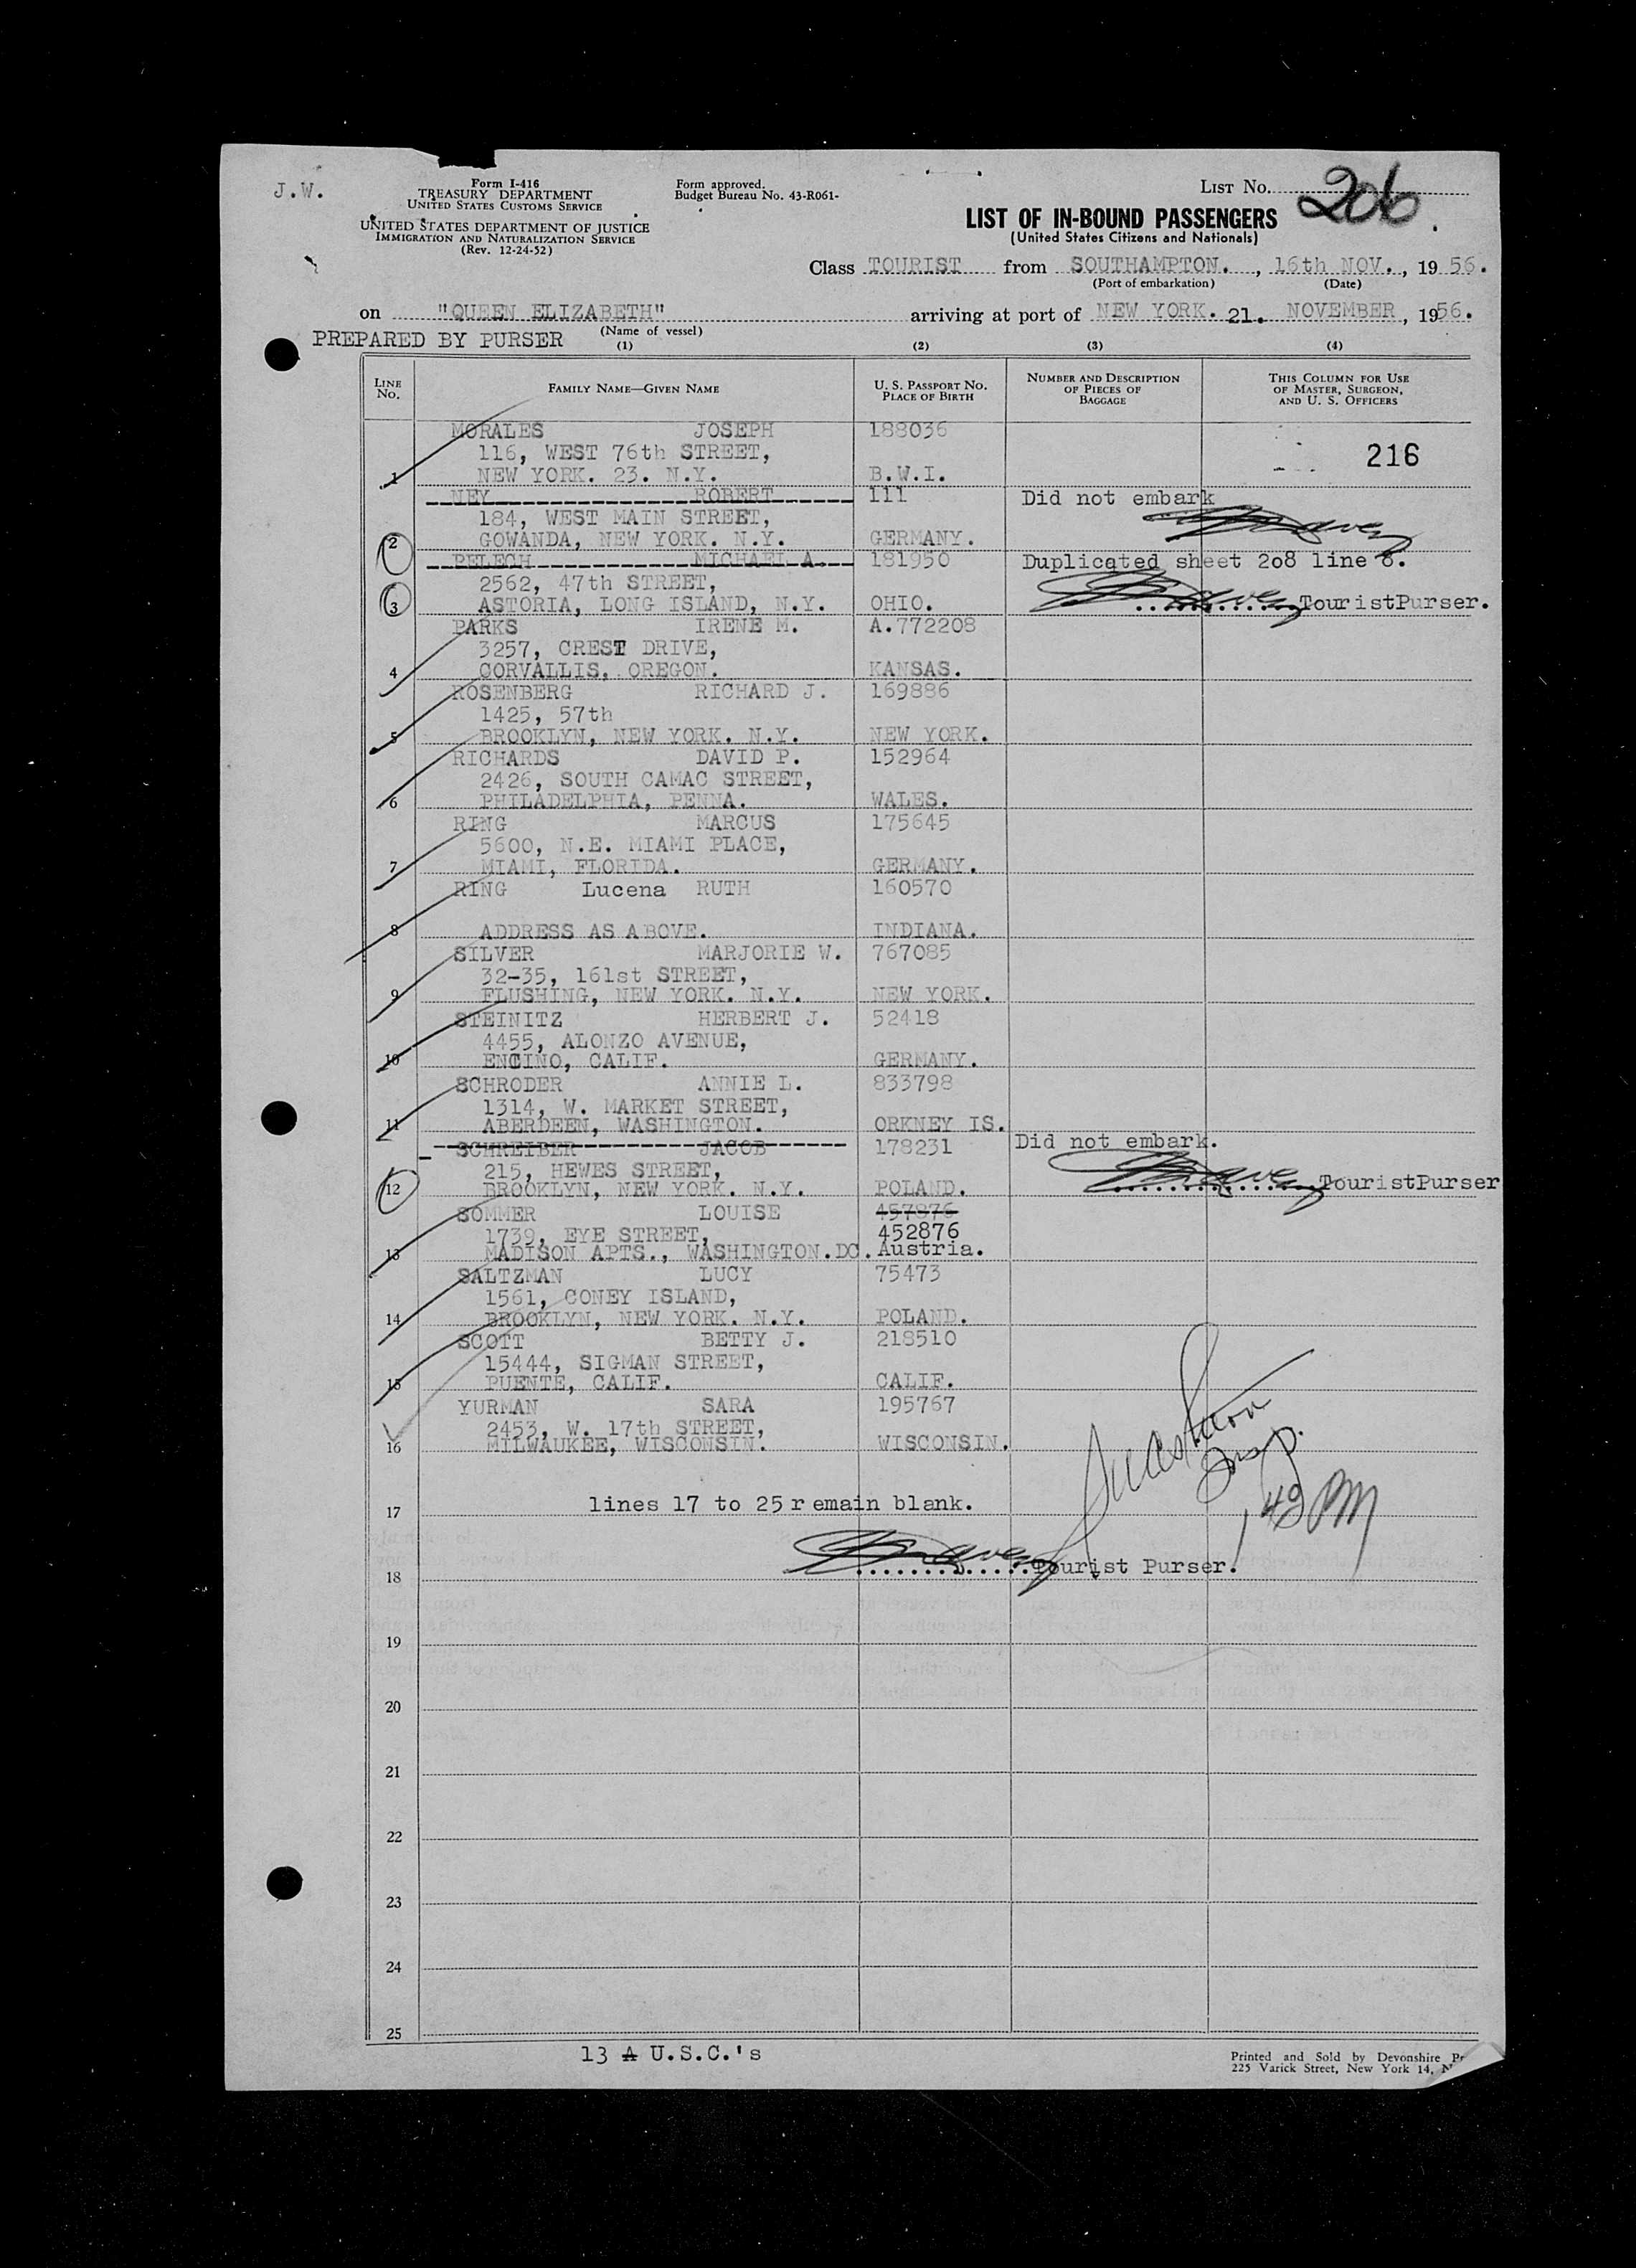 J.W.
Form I-416
TREASURY DEPARTMENT
UNITED STATES CUSTOMS SERVICE
UNITED STATES DEPARTMENT OF JUSTICE
IMMIGRATION AND NATURALIZATION SERVICE
(Rev. 12-24-52)
Form approved.
Budget Bureau No. 43-R061-
LIST NO. 206
LIST OF IN-BOUND PASSENGERS
(United States Citizens and Nationals)
Class TOURIST from SOUTHAMPTON. , 16th NOV. , 19 56.
(Port of embarkation) (Date)
on "QUEEN ELIZABETH" arriving at port of NEW YORK. 21. NOVEMBER , 1956.
PREPARED BY PURSER (Name of vessel)
(1) (2) (3) (4)
LINE NO. FAMILY NAME—GIVEN NAME U. S. PASSPORT NO. PLACE OF BIRTH NUMBER AND DESCRIPTION OF PIECES OF BAGGAGE THIS COLUMN FOR USE OF MASTER, SURGEON, AND U. S. OFFICERS
MORALES JOSEPH 188036
116, WEST 76th STREET, 216
1 NEW YORK. 23. N.Y. B.W.I.
NEY ROBERT 111 Did not embark
184, WEST MAIN STREET,
2 GOWANDA, NEW YORK. N.Y. GERMANY.
PELECH MICHAEL A. 181950 Duplicated sheet 208 line 8.
2562, 47th STREET,
3 ASTORIA, LONG ISLAND, N.Y. OHIO. TouristPurser.
PARKS IRENE M. A.772208
3257, CREST DRIVE,
4 CORVALLIS, OREGON. KANSAS.
ROSENBERG RICHARD J. 169886
1425, 57th
5 BROOKLYN, NEW YORK. N.Y. NEW YORK.
RICHARDS DAVID P. 152964
2426, SOUTH CAMAC STREET,
6 PHILADELPHIA, PENNA. WALES.
RING MARCUS 175645
5600, N.E. MIAMI PLACE,
7 MIAMI, FLORIDA. GERMANY.
RING Lucena RUTH 160570
8 ADDRESS AS ABOVE. INDIANA.
SILVER MARJORIE W. 767085
32-35, 161st STREET,
9 FLUSHING, NEW YORK. N.Y. NEW YORK.
STEINITZ HERBERT J. 52418
4455, ALONZO AVENUE,
10 ENCINO, CALIF. GERMANY.
SCHRODER ANNIE L. 833798
1314, W. MARKET STREET,
11 ABERDEEN, WASHINGTON. ORKNEY IS.
SCHREIBER JACOB 178231 Did not embark.
215, HEWES STREET,
12 BROOKLYN, NEW YORK. N.Y. POLAND. TouristPurser
SOMMER LOUISE 457876
1739, EYE STREET, 452876
13 MADISON APTS., WASHINGTON.DC. Austria.
SALTZMAN LUCY 75473
1561, CONEY ISLAND,
14 BROOKLYN, NEW YORK. N.Y. POLAND.
SCOTT BETTY J. 218510
15444, SIGMAN STREET,
15 PUENTE, CALIF. CALIF.
YURMAN SARA 195767
2453, W. 17th STREET,
16 MILWAUKEE, WISCONSIN. WISCONSIN.
Insp.
17 lines 17 to 25 remain blank. 1 48 PM
18 Tourist Purser.
19
20
21
22
23
24
25
13 A U.S.C.'s
Printed and Sold by Devonshire
225 Varick Street, New York 14,